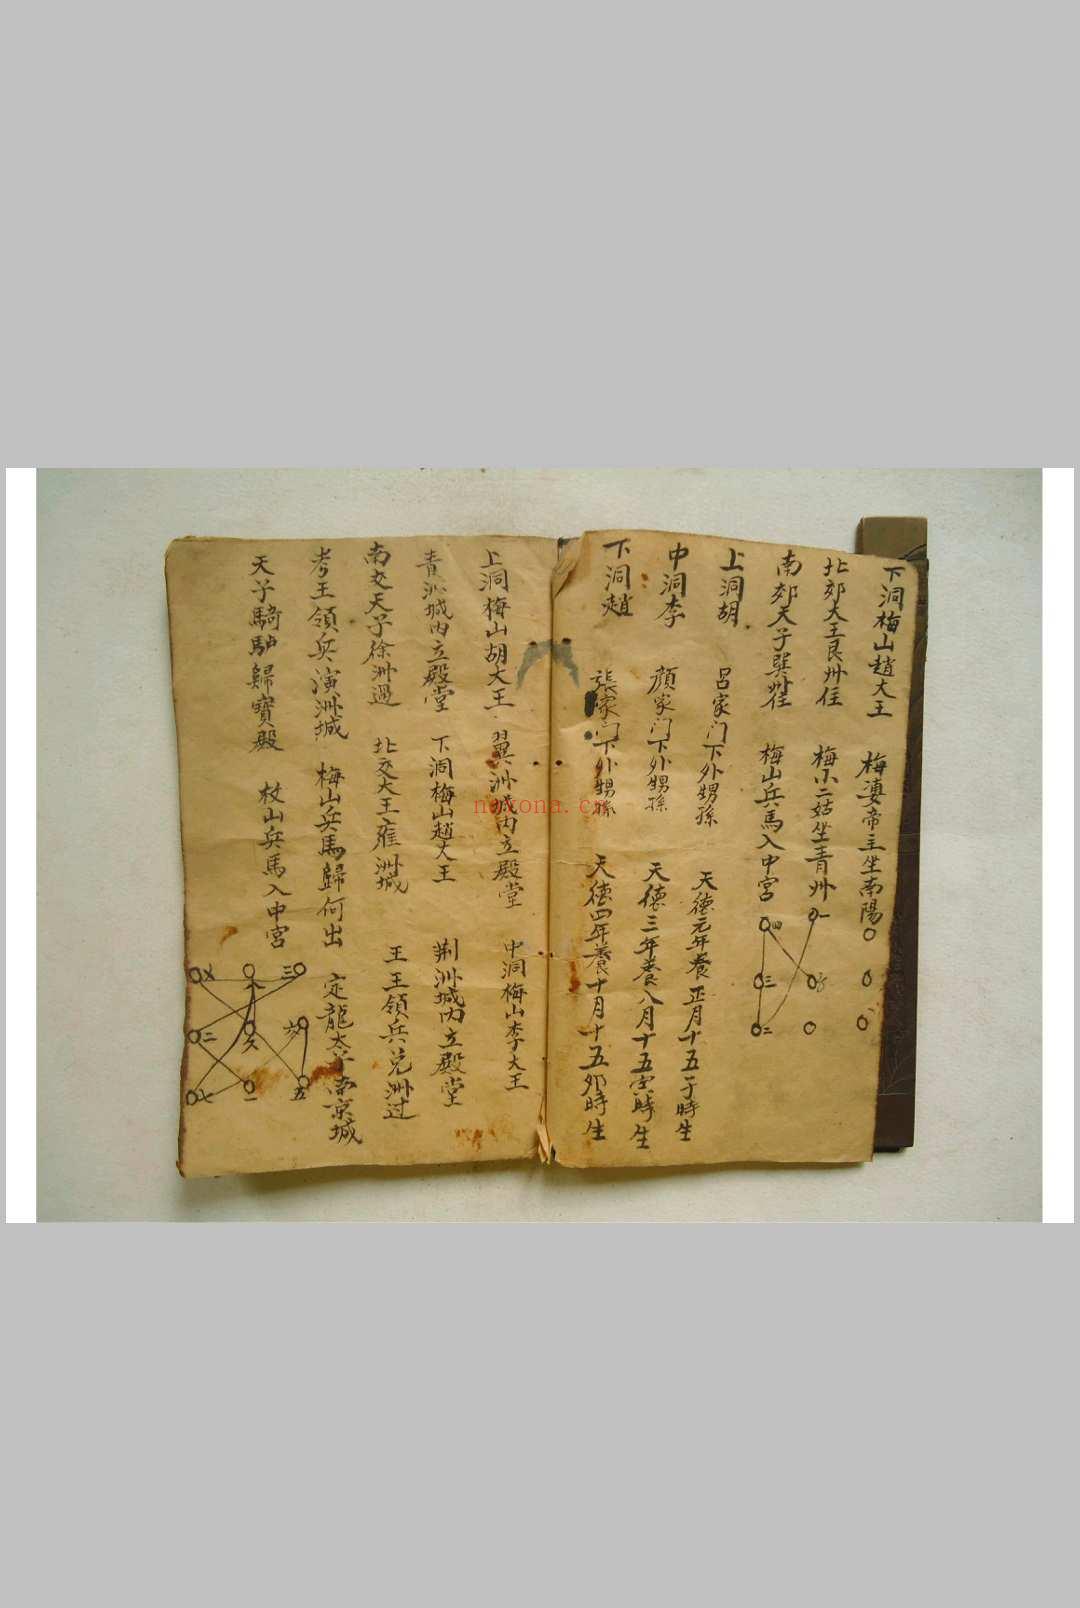 下洞梅山趙大王 梅 帝主坐南陽
北郊大王艮州住 梅小二姑坐青州
南郊天子巽州住 梅山兵馬入中宮
四
三
二
一
上洞胡 呂家门下外甥孫 天德元年養正月十五子時生
中洞李 顏家门下外甥孫 天德三年養八月十五寅時生
下洞趙 張家门下外甥孫 天德四年養十月十五卯時生
上洞梅山胡大王 翼洲城内立殿堂 中洞梅山李大王
青洲城内立殿堂 下洞梅山趙大王 荆洲城内立殿堂
南交天子徐洲過 北交大王雍洲城 王王領兵兌洲过
考王領兵演洲城 梅山兵馬歸何出 定龍太子南京城
天子騎馿歸寶殿 枚山兵馬入中宮
三
八
二
六
七
一
五
nayona.cn